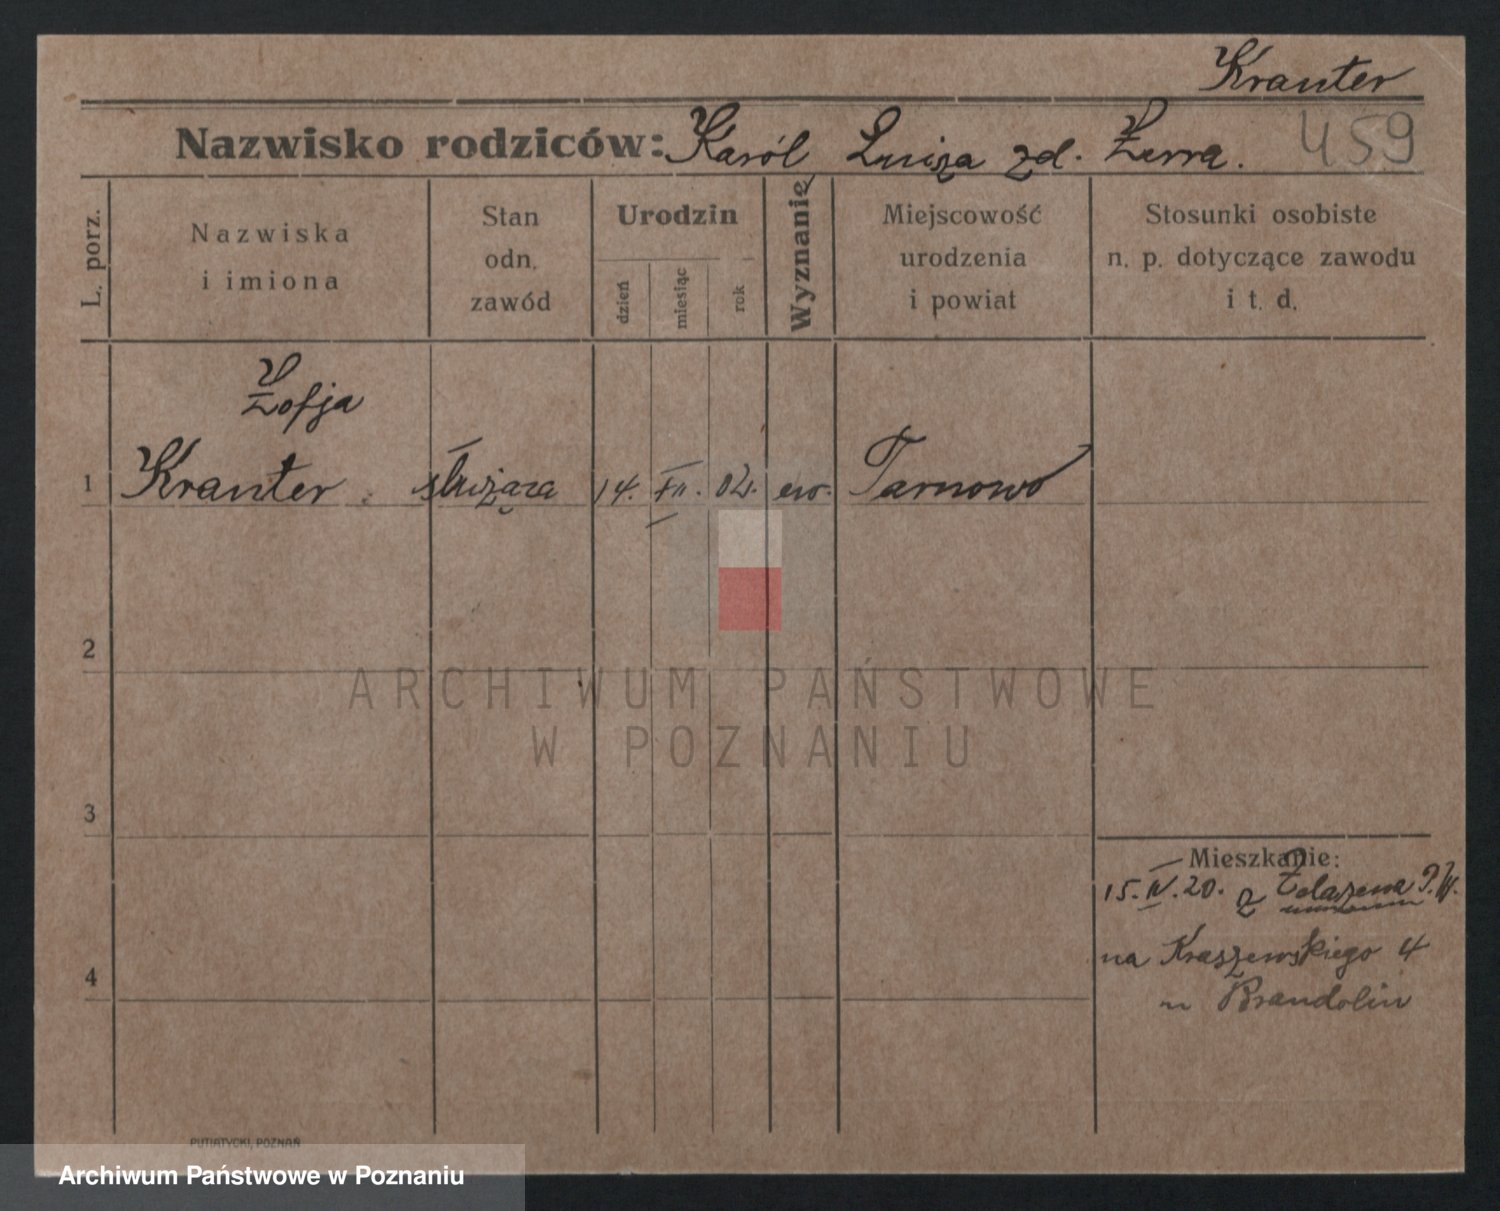 Kranter
Nazwisko rodziców: Karól Luiza zd. Zerra.
459
L. porz.
Nazwiska
i imiona
Stan
odn.
zawód
Urodzin
dzień
miesiąc
rok
Wyznanie
Miejscowość
urodzenia
i powiat
Stosunki osobiste
n. p. dotyczące zawodu
i t. d.
Zofja
1 Kranter służąca 14. XII. 02. ew. Tarnowo
2
3
4
Mieszkanie:
15. IV. 20. z
na Kraszewskiego 4
Brandolin
ARCHIWUM PAŃSTWOWE
W POZNANIU
PUTIATYCKI, POZNAŃ
Archiwum Państwowe w Poznaniu